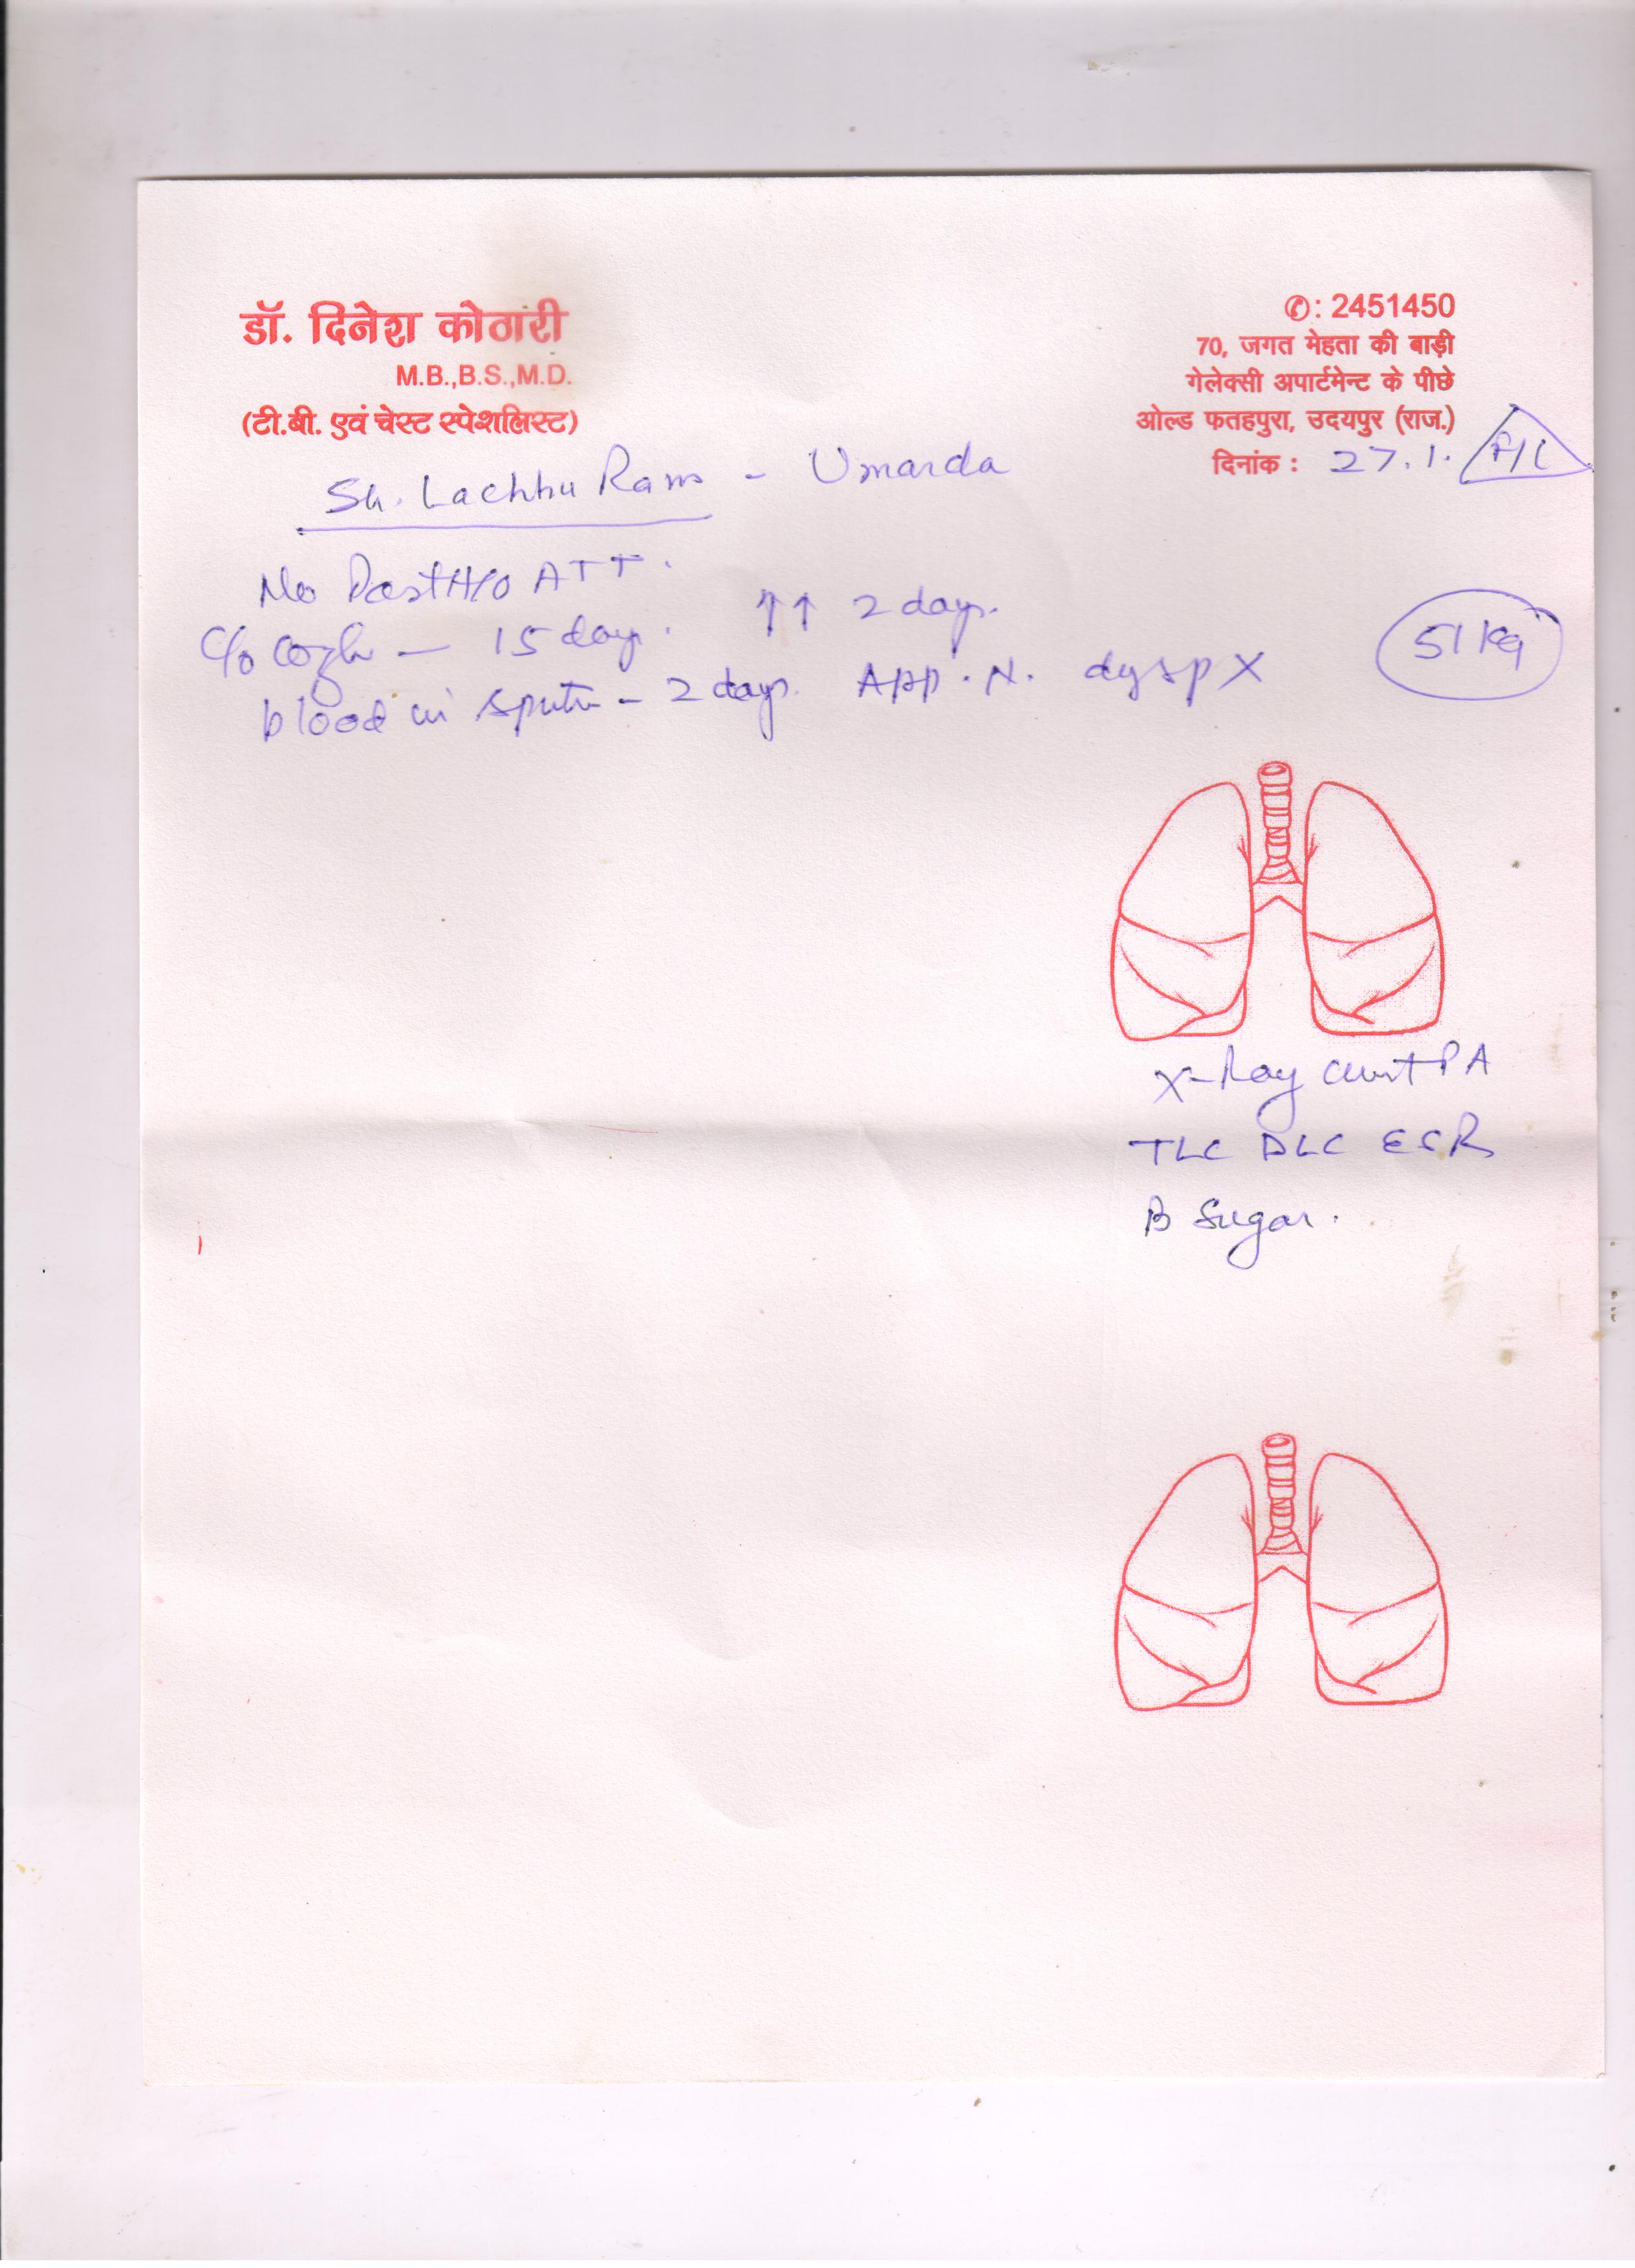 डॉ. दिनेश कोठारी
M.B.,B.S.,M.D.
(टी.बी. एवं चेस्ट स्पेशलिस्ट)
✆: 2451450
70, जगत मेहता की बाड़ी
गेलेक्सी अपार्टमेन्ट के पीछे
ओल्ड फतहपुरा, उदयपुर (राज.)
दिनांक : 27.1.
Sh. Lachhu Ram - Umarda
No Past H/O ATT.
C/o cough — 15 days. ↑↑ 2 days.
blood in sputum - 2 days. App. N. dysp X
51 kg
X-Ray chest PA
TLC DLC ESR
B Sugar.